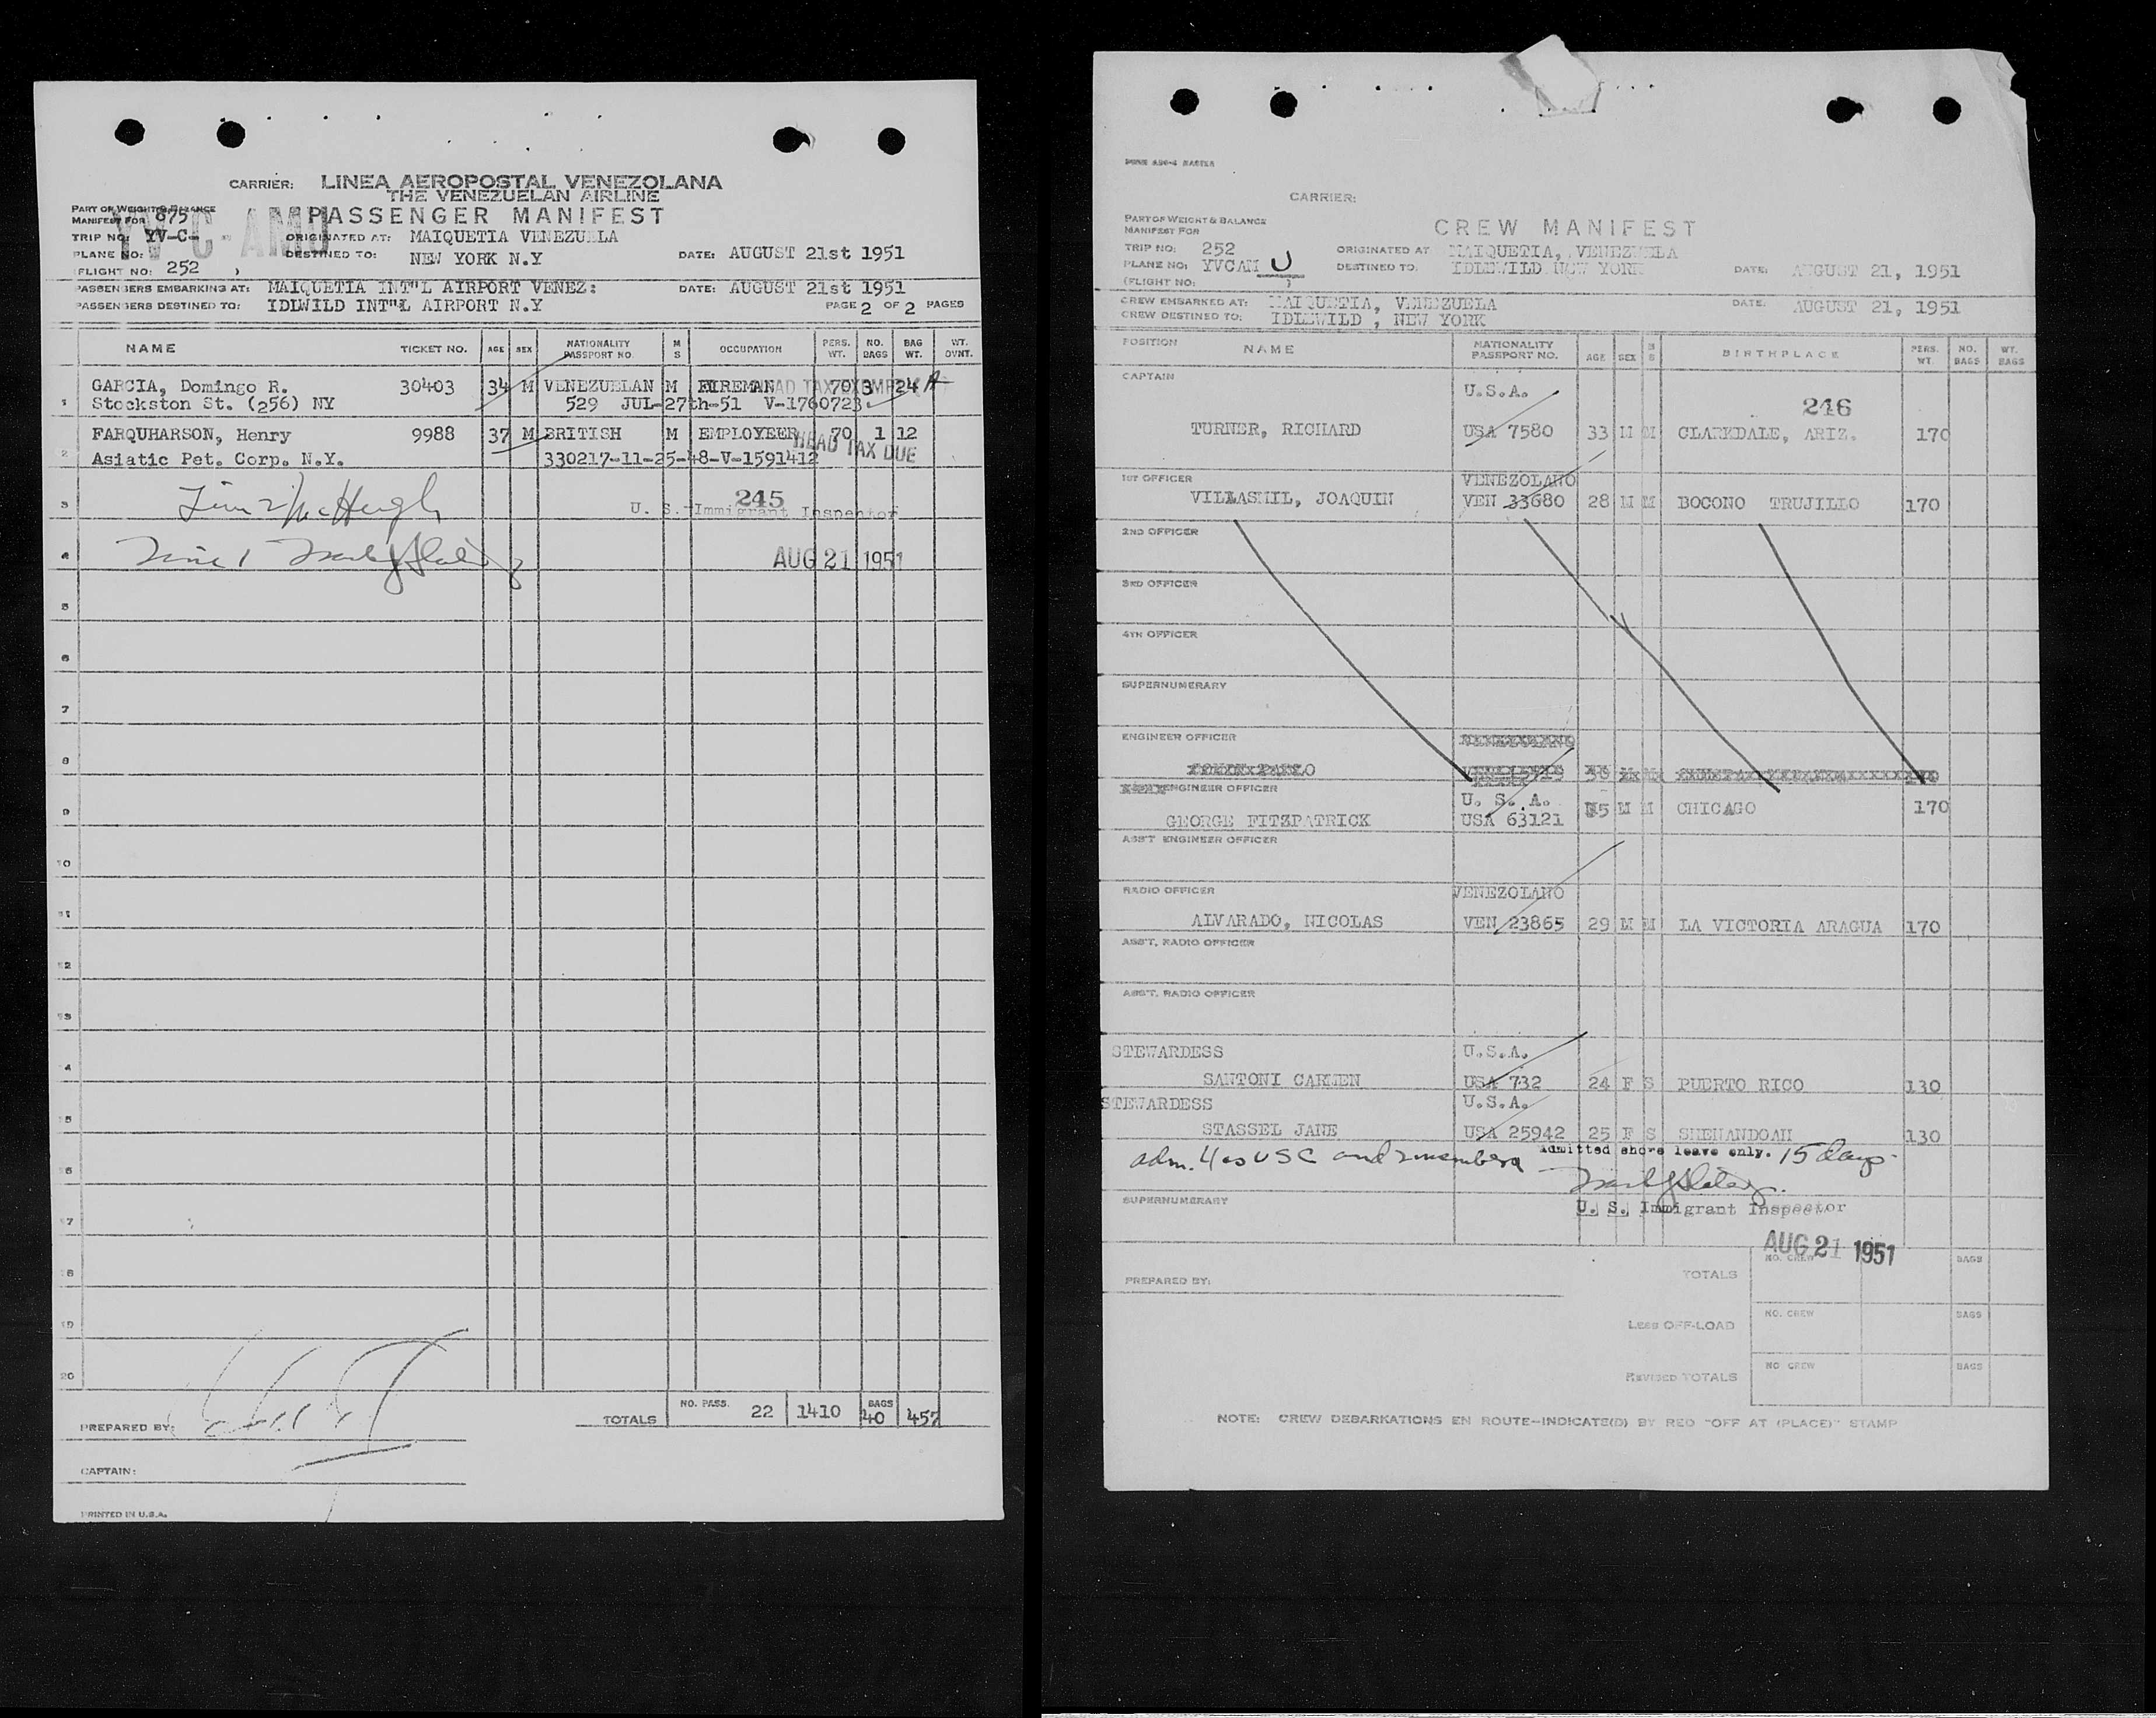 CARRIER: LINEA AEROPOSTAL VENEZOLANA
THE VENEZUELAN AIRLINE
PASSENGER MANIFEST
PART OF WEIGHT & BALANCE
MANIFEST FOR 875
YV-C-AMU
TRIP NO: YV-C- ORIGINATED AT: MAIQUETIA VENEZUELA
PLANE NO: DESTINED TO: NEW YORK N.Y DATE: AUGUST 21st 1951
(FLIGHT NO: 252 )
PASSENGERS EMBARKING AT: MAIQUETIA INT"L AIRPORT VENEZ: DATE: AUGUST 21st 1951
PASSENGERS DESTINED TO: IDLWILD INT"L AIRPORT N.Y PAGE 2 OF 2 PAGES
NAME TICKET NO. AGE SEX NATIONALITY PASSPORT NO. M S OCCUPATION PERS. WT. NO. BAGS BAG WT. WT. OVNT.
1 GARCIA, Domingo R. 30403 34 M VENEZUELAN M FIREMAN 70 3 24
Stockston St. (256) NY 529 JUL-27th-51 V-1760723
2 FARQUHARSON, Henry 9988 37 M BRITISH M EMPLOYEER 70 1 12
HEAD TAX DUE
Asiatic Pet. Corp. N.Y. 330217-11-25-48-V-1591412
3 245
U. S. Immigrant Inspector
4 AUG 21 1951
5
6
7
8
9
10
11
12
13
14
15
16
17
18
19
20
TOTALS NO. PASS. 22 1410 BAGS 40 457
PREPARED BY:
CAPTAIN:
PRINTED IN U.S.A.
CARRIER:
PART OF WEIGHT & BALANCE
MANIFEST FOR
CREW MANIFEST
TRIP NO: 252 ORIGINATED AT MAIQUETIA, VENEZUELA
PLANE NO: YVCAM U DESTINED TO: IDLEWILD NEW YORK DATE: AUGUST 21, 1951
(FLIGHT NO: )
CREW EMBARKED AT: MAIQUETIA, VENEZUELA DATE: AUGUST 21, 1951
CREW DESTINED TO: IDLEWILD , NEW YORK
POSITION NAME NATIONALITY PASSPORT NO. AGE SEX M S BIRTHPLACE PERS. WT. NO. BAGS WT. BAGS
CAPTAIN U.S.A.
246
TURNER, RICHARD USA 7580 33 M M CLARKDALE, ARIZ. 170
1ST OFFICER VENEZOLANO
VILLASMIL, JOAQUIN VEN 33680 28 M M BOCONO TRUJILLO 170
2ND OFFICER
3RD OFFICER
4TH OFFICER
SUPERNUMERARY
ENGINEER OFFICER
ENGINEER OFFICER U. S. A.
GEORGE FITZPATRICK USA 63121 M M CHICAGO 170
ASS'T ENGINEER OFFICER
RADIO OFFICER VENEZOLANO
ALVARADO, NICOLAS VEN 23865 29 M M LA VICTORIA ARAGUA 170
ASS'T. RADIO OFFICER
ASS'T. RADIO OFFICER
STEWARDESS U.S.A.
SANTONI CARMEN USA 732 24 F S PUERTO RICO 130
STEWARDESS U.S.A.
STASSEL JANE USA 25942 25 F S SHENANDOAH 130
adm. 4 as USC and 2 members Admitted shore leave only. 15 days
SUPERNUMERARY
U. S. Immigrant Inspector
AUG 21 1951
PREPARED BY: TOTALS NO. CREW BAGS
LESS OFF-LOAD NO. CREW BAGS
REVISED TOTALS NO CREW BAGS
NOTE: CREW DEBARKATIONS EN ROUTE-INDICATE(D) BY RED "OFF AT (PLACE)" STAMP